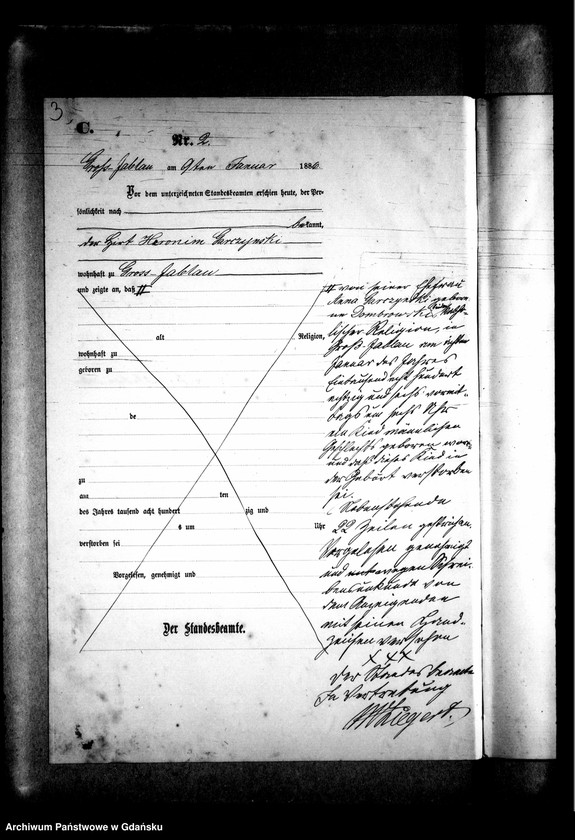 3
C.
Nr. 2.
Gross-Jablau am 9ten Januar 1886.
Vor dem unterzeichneten Standesbeamten erschien heute, der Per-
sönlichkeit nach
bekannt,
der Hirt Heronim Garczynski
wohnhaft zu Gross-Jablau
und zeigte an, daß #
alt Religion,
wohnhaft zu
geboren zu
de
zu
am ten
des Jahres tausend acht hundert zig und
s um Uhr
verstorben sei
Vorgelesen, genehmigt und
Der Standesbeamte.
# von seiner Ehefrau
Anna Garczynski gebore-
ne Dombrowski, katho-
lischer Religion, in
Gross-Jablau am achten
Januar des Jahres
Eintausend acht hundert
achtzig und sechs vormit-
tags um sechs Uhr
ein Kind männlichen
Geschlechts geboren worden
und daß dieses Kind in
der Geburt verstorben
sei.
Nebenstehende
22 Zeilen gestrichen.
Vorgelesen genehmigt
und wegen Schrei-
bensunkunde von
dem Anzeigenden
mit seinen Hand-
zeichen versehen
XXX
Der Standesbeamte
In Vertretung
Archiwum Państwowe w Gdańsku